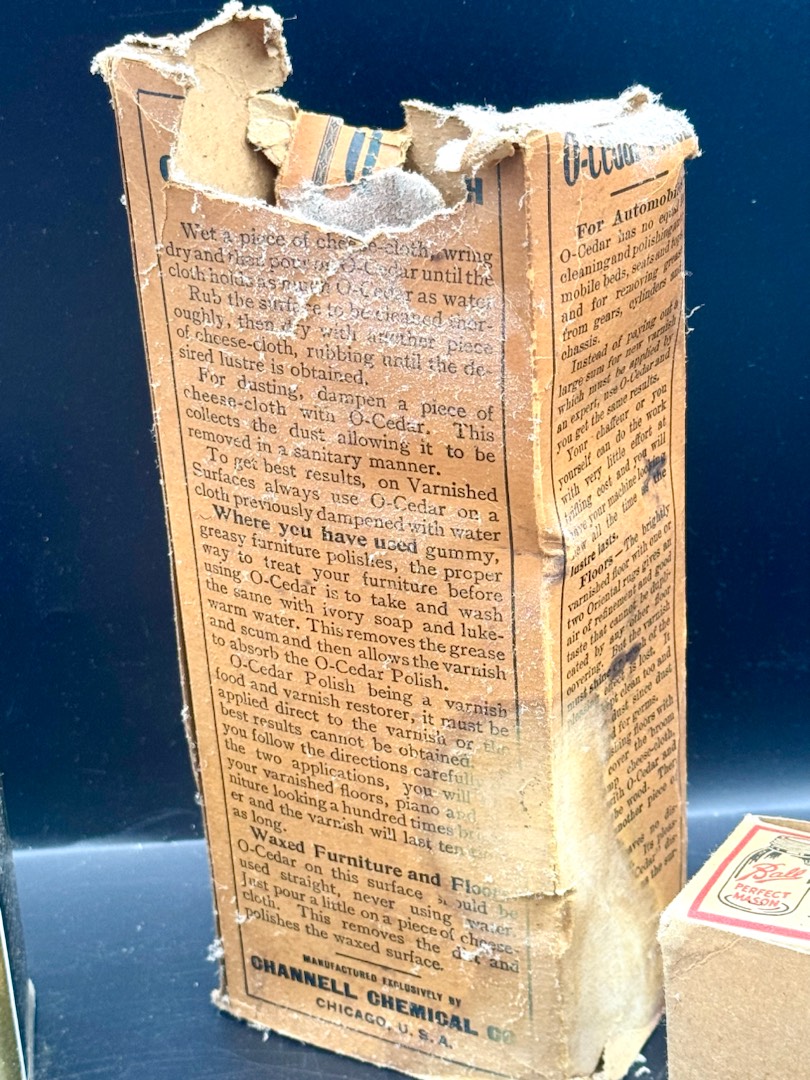 H
Wet a piece of cheese-cloth, wring
dry and then pour on O-Cedar until the
cloth holds as much O-Cedar as water
Rub the surface to be cleaned thor-
oughly, then dry with another piece
of cheese-cloth, rubbing until the de-
sired lustre is obtained.
For dusting, dampen a piece of
cheese-cloth with O-Cedar. This
collects the dust allowing it to be
removed in a sanitary manner.
To get best results, on Varnished
Surfaces always use O-Cedar on a
cloth previously dampened with water
Where you have used gummy,
greasy furniture polishes, the proper
way to treat your furniture before
using O-Cedar is to take and wash
the same with ivory soap and luke-
warm water. This removes the grease
and scum and then allows the varnish
to absorb the O-Cedar Polish.
O-Cedar Polish being a varnish
food and varnish restorer, it must be
applied direct to the varnish or the
best results cannot be obtained.
you follow the directions carefully
the two applications, you will
your varnished floors, piano and
niture looking a hundred times
er and the varnish will last ten
as long.
Waxed Furniture and Floors
O-Cedar on this surface should be
used straight, never using water.
Just pour a little on a piece of cheese-
cloth. This removes the dirt and
polishes the waxed surface.
MANUFACTURED EXCLUSIVELY BY
CHANNELL CHEMICAL CO
CHICAGO, U. S. A.
O-Cedar
For Automobi
O-Cedar has no equ
cleaning and polishing
mobile beds, seats and
and for removing grease
from gears, cylinders
chassis.
Instead of paying out a
large sum for new varnish
which must be applied by
an expert, use O-Cedar and
you get the same results.
Your chaffeur or you
yourself can do the work
with very little effort at
trifling cost and you will
have your machine looking
new all the time
lustre lasts.
Floors—The brightly
varnished floor with one or
two Oriental rugs gives an
air of refinement and good
taste that cannot be dupli-
cated by any other floor
covering. But the varnish
must shine
is lost. It
clean too and
since dust
for germs.
floors with
cover the broom
cheese-cloth,
with O-Cedar and
the wood. Then
another piece
leaves no
Ball
PERFECT
MASON